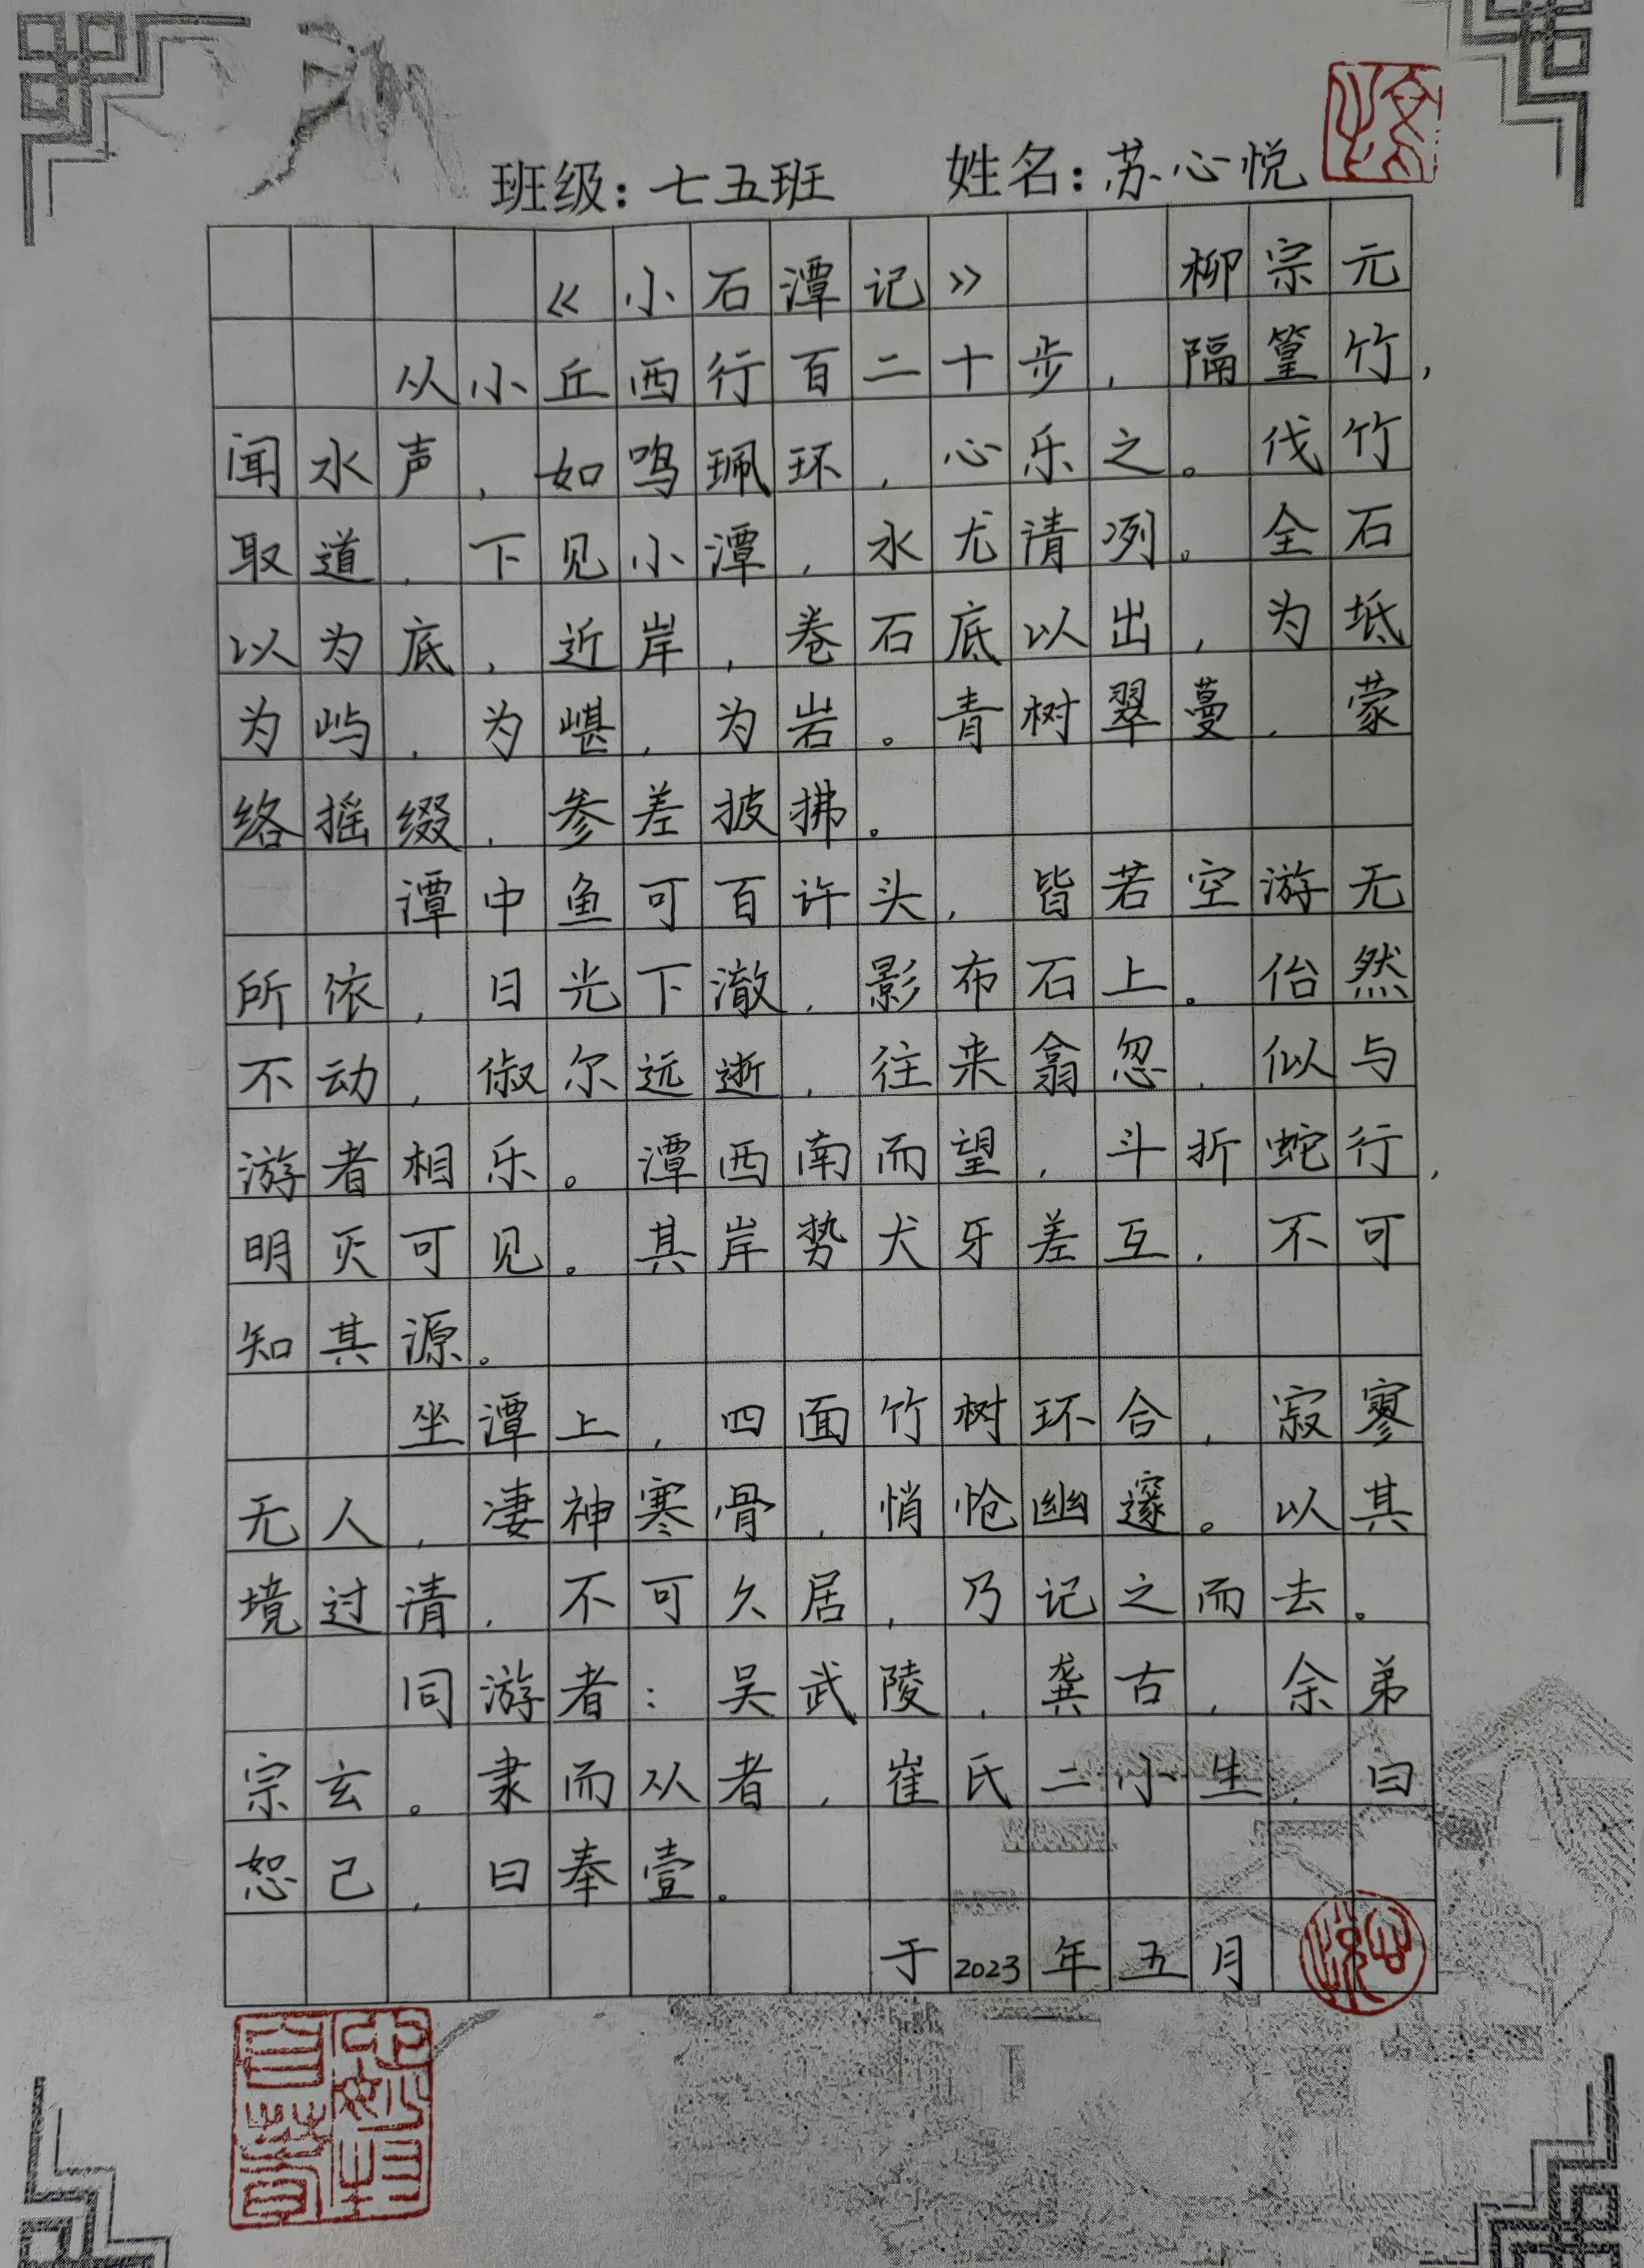 班级：七五班 姓名：苏心悦
《小石潭记》 柳宗元
从小丘西行百二十步，隔篁竹，
闻水声，如鸣珮环，心乐之。伐竹
取道，下见小潭，水尤清冽。全石
以为底，近岸，卷石底以出，为坻
为屿，为嵁，为岩。青树翠蔓，蒙
络摇缀，参差披拂。
潭中鱼可百许头，皆若空游无
所依，日光下澈，影布石上。佁然
不动，俶尔远逝，往来翕忽，似与
游者相乐。潭西南而望，斗折蛇行，
明灭可见。其岸势犬牙差互，不可
知其源。
坐潭上，四面竹树环合，寂寥
无人，凄神寒骨，悄怆幽邃。以其
境过清，不可久居，乃记之而去。
同游者：吴武陵，龚古，余弟
宗玄。隶而从者，崔氏二小生，曰
恕己，曰奉壹。
于2023年五月